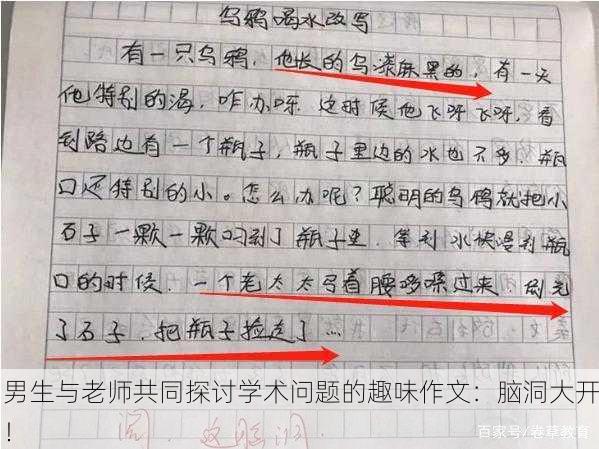 乌鸦喝水改写
有一只乌鸦，他长的乌漆麻黑的，有一天
他特别的渴，咋办呀，这时候他飞呀飞呀，看
到路边有一个瓶子，瓶子里边的水也不多，瓶
口还特别的小。怎么办呢？聪明的乌鸦就把小
石子一颗一颗叼到了瓶子里，等到水快漫到瓶
口的时候，一个老太太弓着腰哆嗦过来，倒光
了石子，把瓶子捡走了……
男生与老师共同探讨学术问题的趣味作文：脑洞大开
！
这脑洞
百家号/卷草教育